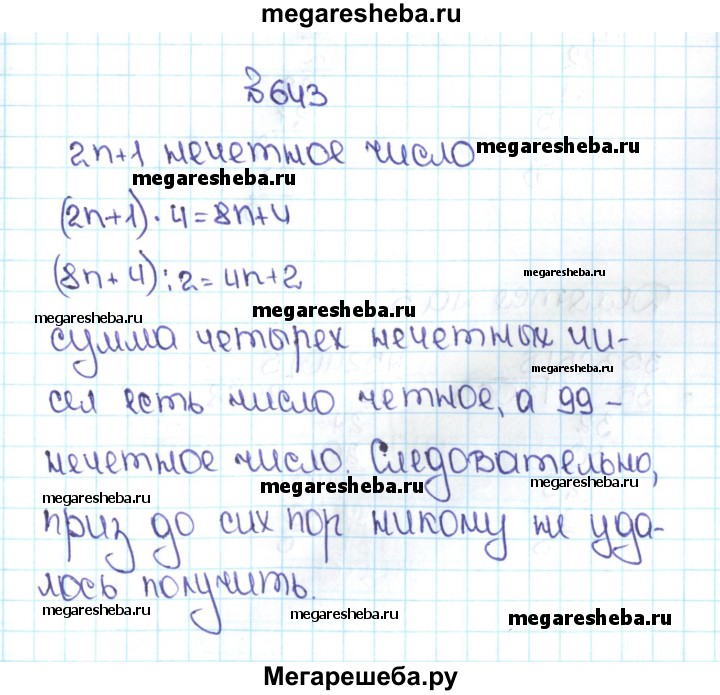 megaresheba.ru
№643
2n+1 нечетное число megaresheba.ru
megaresheba.ru
(2n+1)·4=8n+4
(8n+4):2=4n+2
megaresheba.ru
megaresheba.ru
megaresheba.ru
сумма четырех нечетных чи-
megaresheba.ru
сел есть число четное, а 99 -
нечетное число. Следовательно,
megaresheba.ru
megaresheba.ru
megaresheba.ru
приз до сих пор никому не уда-
лось получить.
megaresheba.ru
megaresheba.ru
megaresheba.ru
Мегарешеба.ру